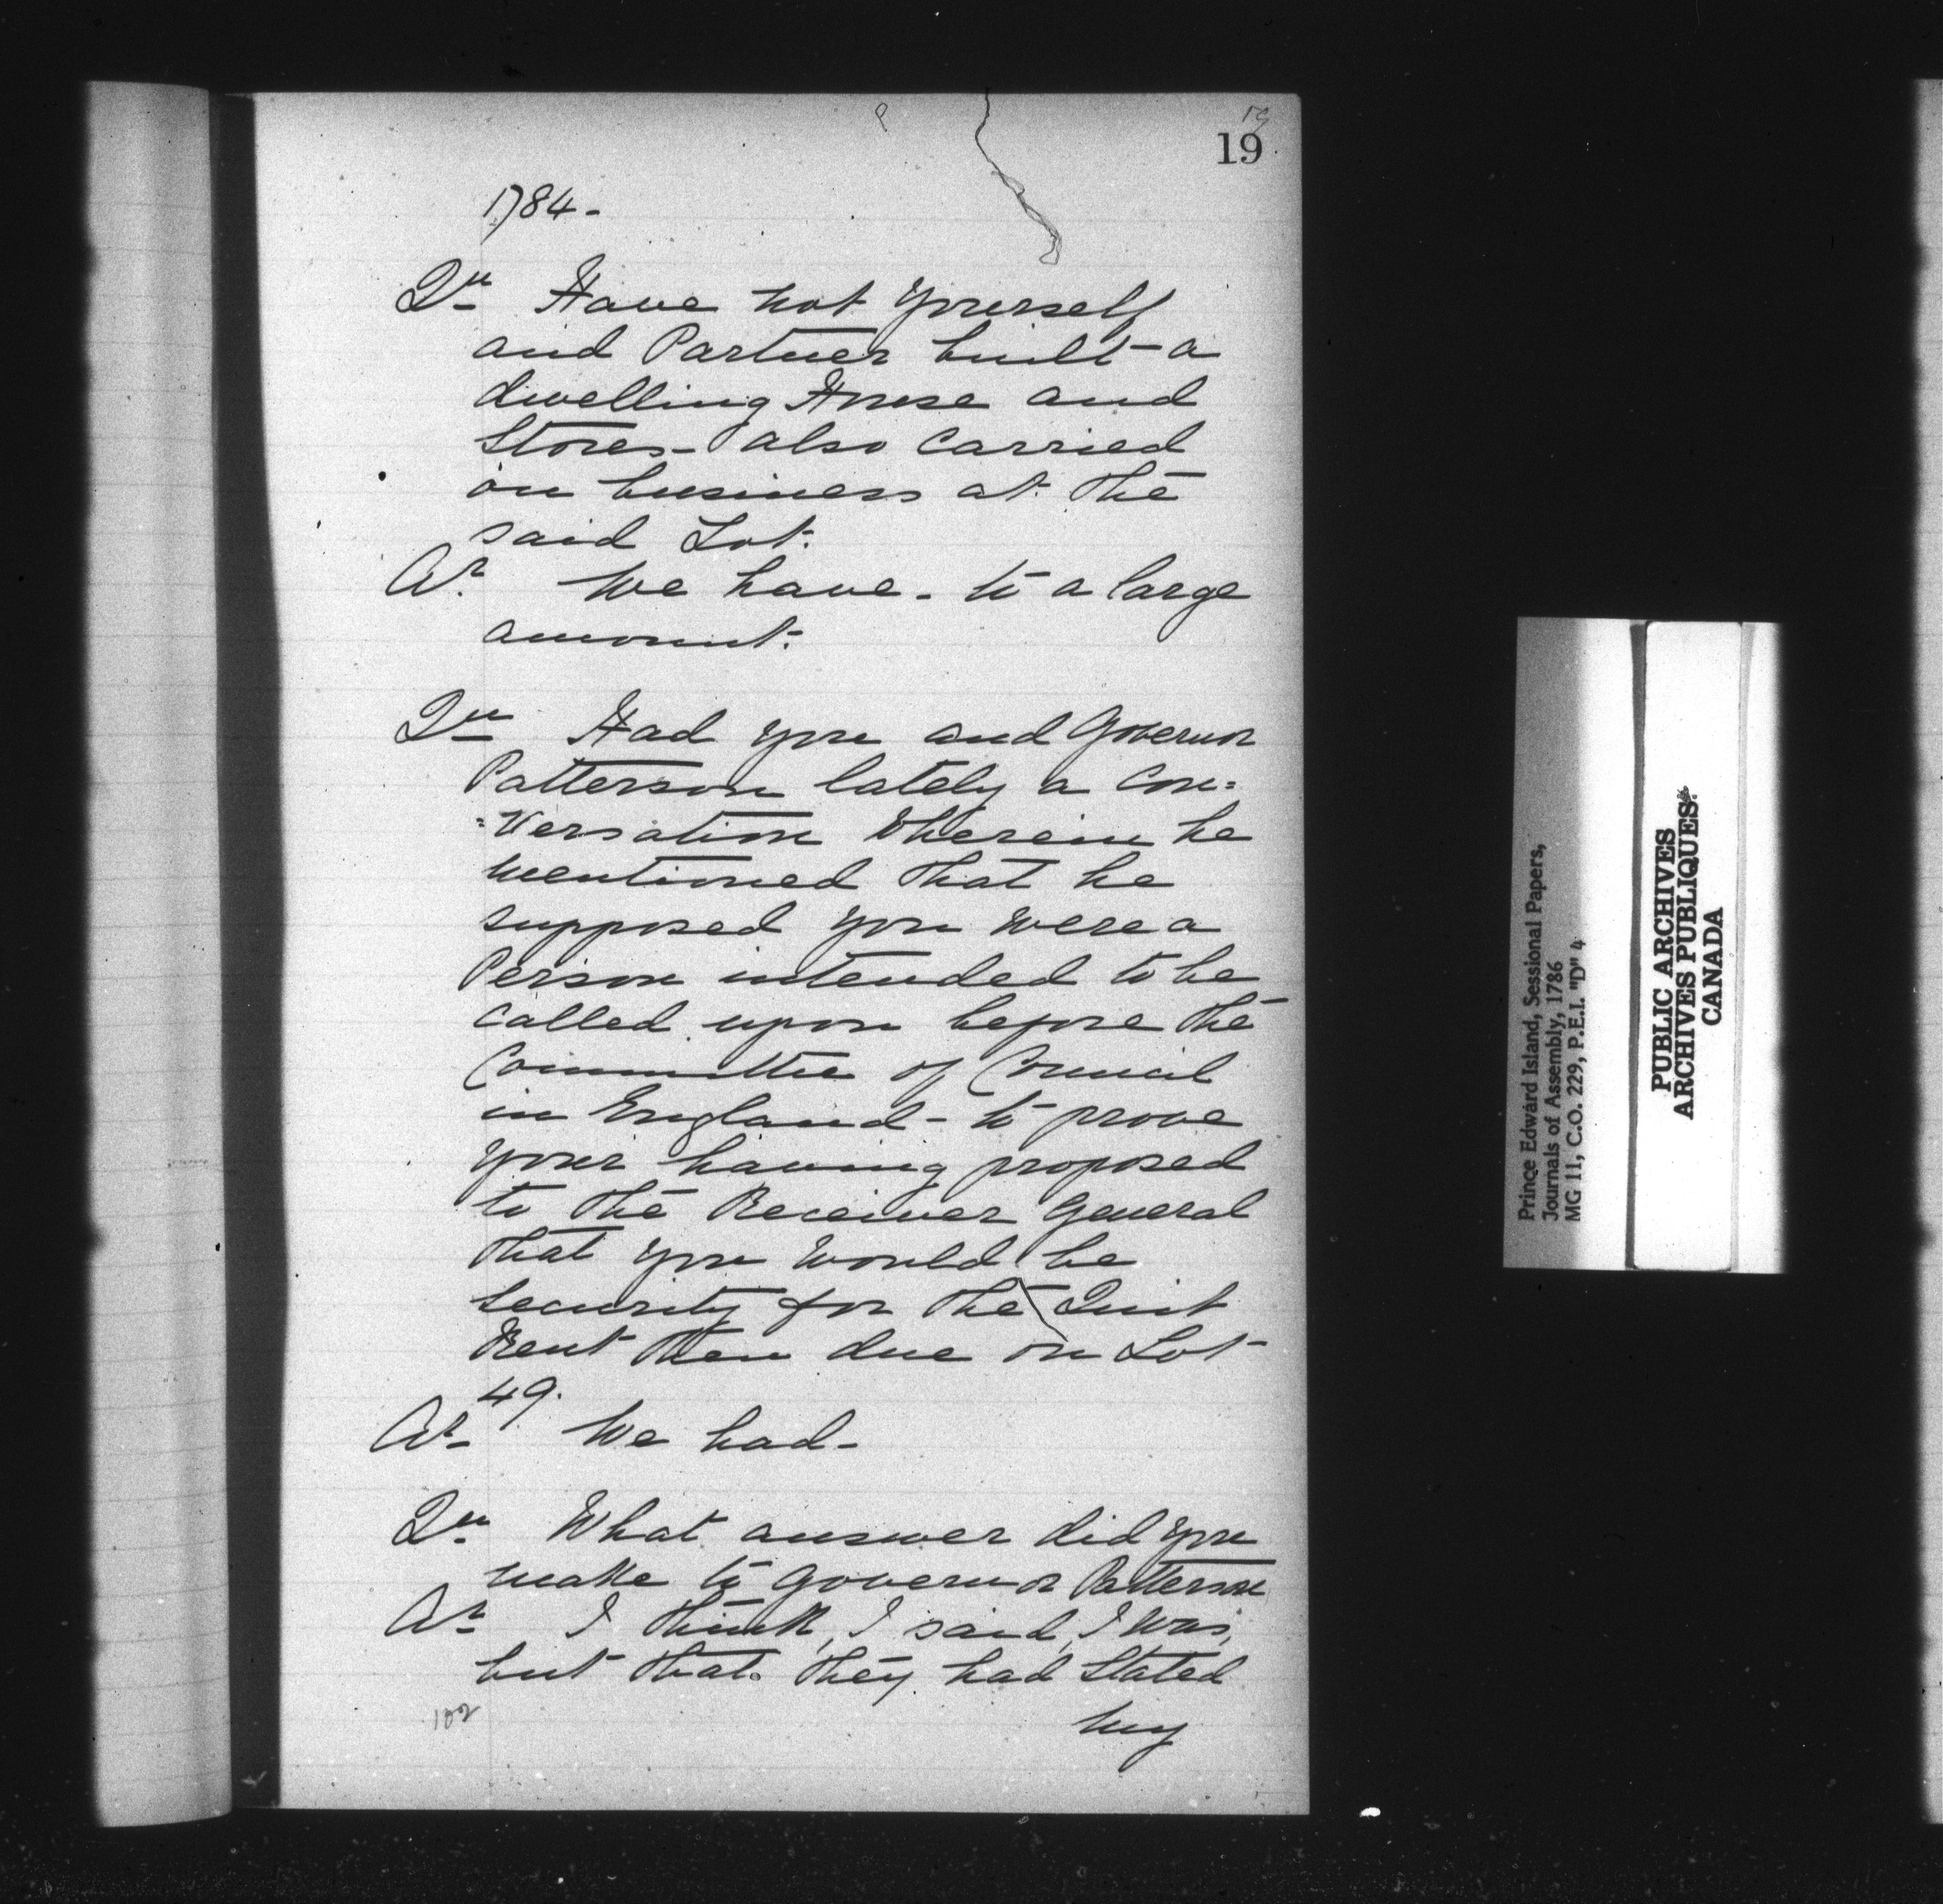 19
19
1784-
Qu Have not yourself
and Partner built a
dwelling House and
Stores- also carried
on business at the
said Lot.
Ar. We have - to a large
amount.
Qu Had you and Governor
Patterson lately a con=
=versation wherein he
mentioned that he
supposed you were a
Person intended to be
called upon before the
Committee of Council
in England - to prove
your having proposed
to the Receiver General
that you would be
security for the Quit
Rent then due on Lot
49.
Ar- We had-
Qu What answer did you
make to Governor Patterson
Ar I think, I said, I was,
but that they had Stated
102
my
Prince Edward Island, Sessional Papers,
Journals of Assembly, 1786
MG 11, C.O. 229, P.E.I. "D" 4
PUBLIC ARCHIVES
ARCHIVES PUBLIQUES
CANADA